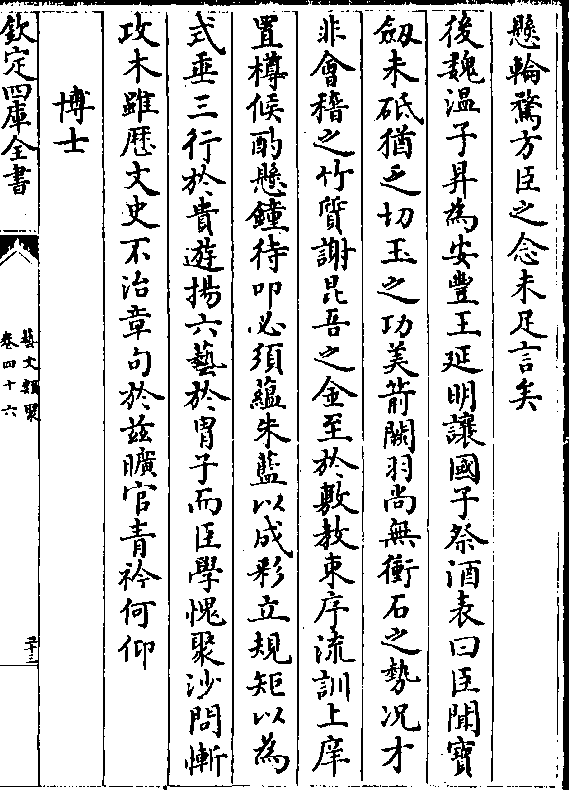 懸輪騖方臣之念未足言矣
後魏温子昇為安豐王延明讓國子祭酒表曰臣聞寶
劔未砥猶乏切玉之功美箭闕羽尚無衝石之勢况才
非會稽之竹質謝昆吾之金至於敷教東序流訓上庠
置樽候酌懸鐘待叩必須藴朱藍以成彩立規矩以為
式垂三行於貴遊揚六藝於胄子而臣學愧聚沙問慚
攻木雖歴文史不治章句於兹曠官青衿何仰
博士
欽定四庫全書
藝文類聚
卷四十六
二十三